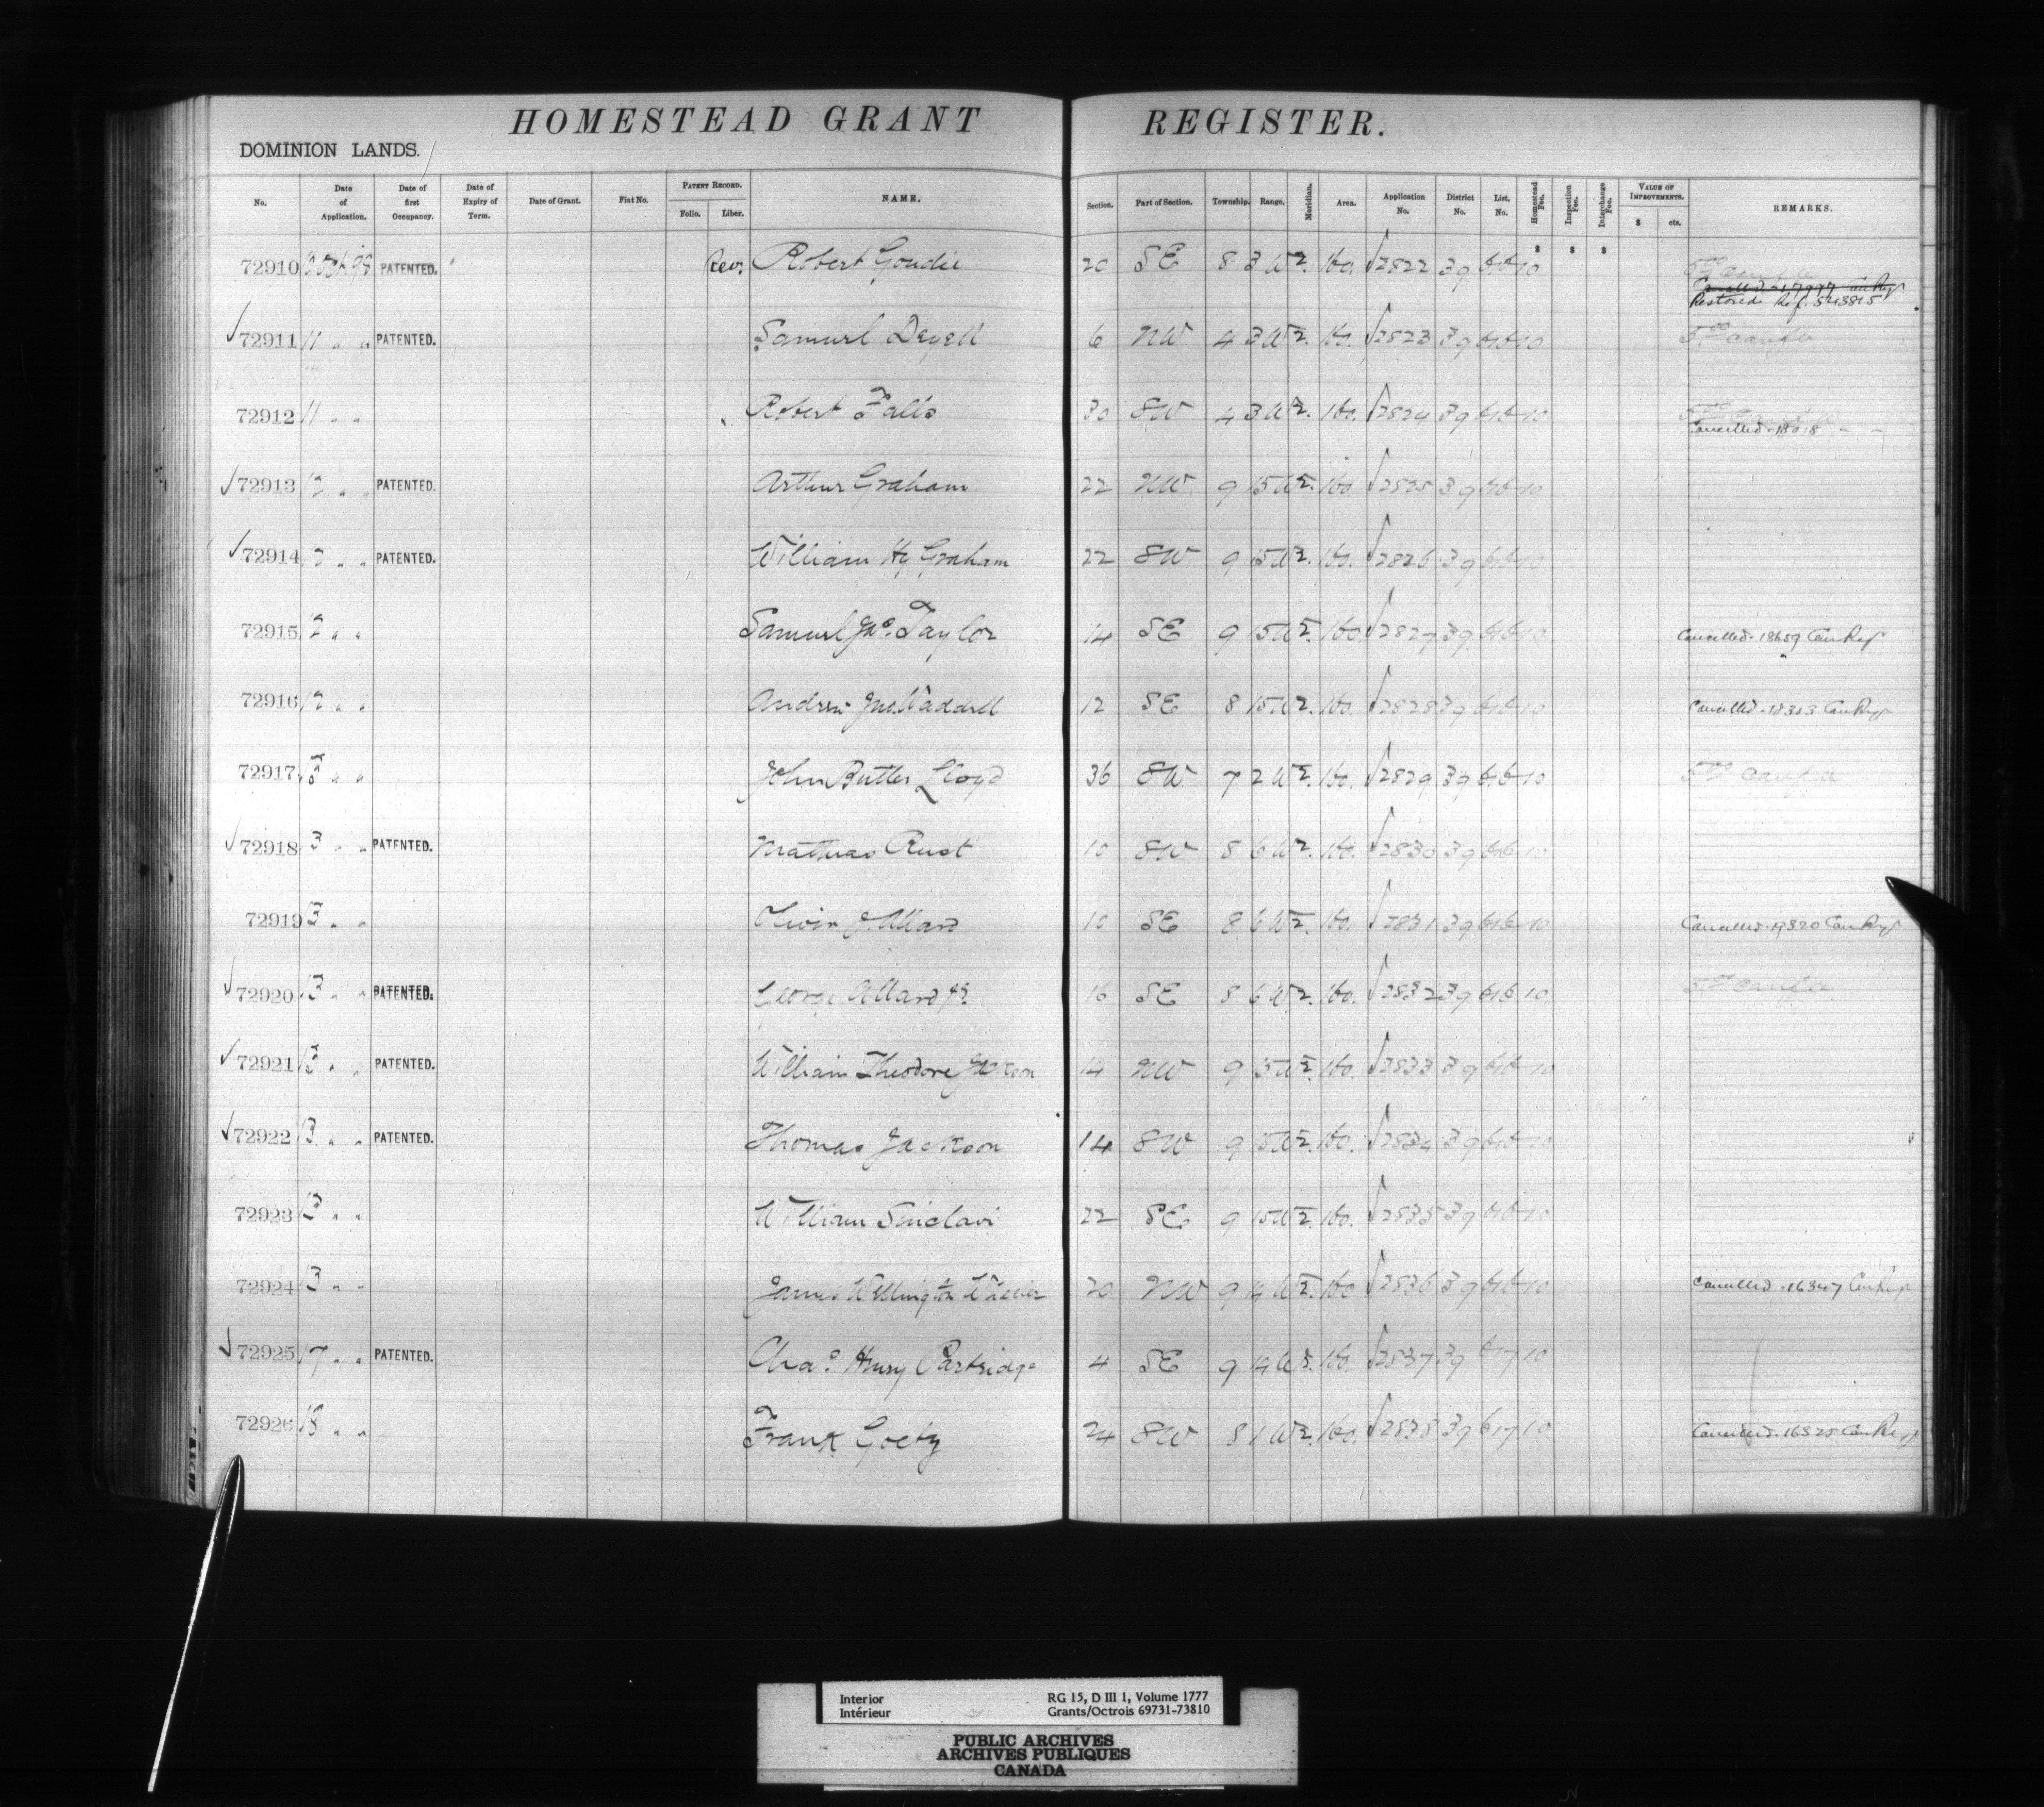 HOMESTEAD GRANT REGISTER.
DOMINION LANDS.
No. Date of Application. Date of first Occupancy. Date of Expiry of Term. Date of Grant. Fiat No. PATENT RECORD. Folio. Liber. NAME. Section. Part of Section. Township. Range. Meridian. Area. Application No. District No. List. No. Homestead Fee. Inspection Fee. Interchange Fee. VALUE OF IMPROVEMENTS. $ cts. REMARKS.
$ $ $
72910 Oct. 98 PATENTED. Rev. Robert Goudie 20 SE 8 3 W 2. 160. 2822 39 10
Restored Ref. 543815
72911 11 " " PATENTED. Samuel Deyell 6 NW 4 3 W 2. 160. 2823 39 10
72912 11 " " Robert Falls 30 SW 4 3 W 2. 160. 2824 39 10
Cancelled - 18018 " "
72913 12 " " PATENTED. Arthur Graham 22 NW 9 15 W 2. 160. 2825 39 10
72914 12 " " PATENTED. William Hy Graham 22 SW 9 15 W 2. 160. 2826 39 10
72915 12 " " Samuel Jno. Taylor 14 SE 9 15 W 2. 160 2827 39 10 Cancelled - 18659 Can Reg
72916 12 " " Andrew Jno. Waddell 12 SE 8 15 W 2. 160. 2828 39 10 Cancelled - 18303 Can Reg
72917 13 " " John Butler Lloyd 36 SW 7 2 W 2. 160. 2829 39 10
72918 13 " " PATENTED. Mathias Rust 10 SW 8 6 W 2. 160. 2830 39 10
72919 13 " " J. Allard 10 SE 8 6 W 2. 160. 2831 39 10 Cancelled - 19320 Can Reg
72920 13 " " PATENTED. George Allard Jr. 16 SE 8 6 W 2. 160. 2832 39 10
72921 13 " " PATENTED. William Theodore Jackson 14 NW 9 15 W 2. 160. 2833 39 10
72922 13 " " PATENTED. Thomas Jackson 14 SW 9 15 W 2. 160. 2834 39 10
72923 13 " " William Sinclair 22 SE 9 15 W 2. 160. 2835 39 10
72924 13 " " James Wellington Wheeler 20 NW 9 14 W 2. 160 2836 39 10 Cancelled - 16347 Can Reg
72925 17 " " PATENTED. Chas. Henry Partridge 4 SE 9 14 W 2. 160. 2837 39 617 10
72926 18 " " Frank Goetz 24 SW 8 1 W 2. 160. 2838 39 617 10 Cancelled - 16325 Can Reg
Interior RG 15, D III 1, Volume 1777
Intérieur Grants/Octrois 69731-73810
PUBLIC ARCHIVES
ARCHIVES PUBLIQUES
CANADA